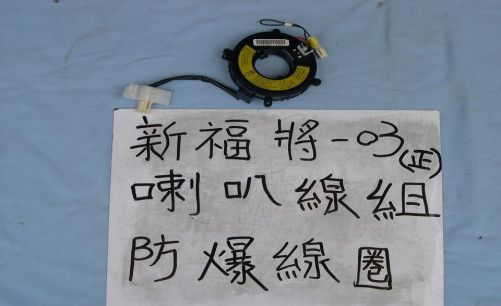 新福將-03(正)
喇叭線組
防爆線圈